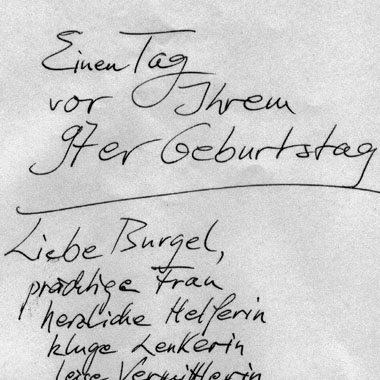 Einen Tag
vor Ihrem
97er Geburtstag
Liebe Burgel,
prächtige Frau
herzliche Helferin
kluge Lenkerin
leise Vermittlerin